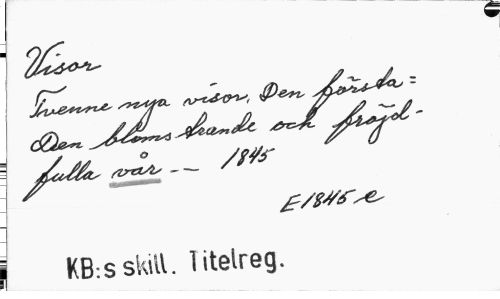 Visor
Tvenne nya visor. Den första=
Den blomstrande och fröjd-
fulla vår -- 1845
E1845 e
KB:s skill. Titelreg.